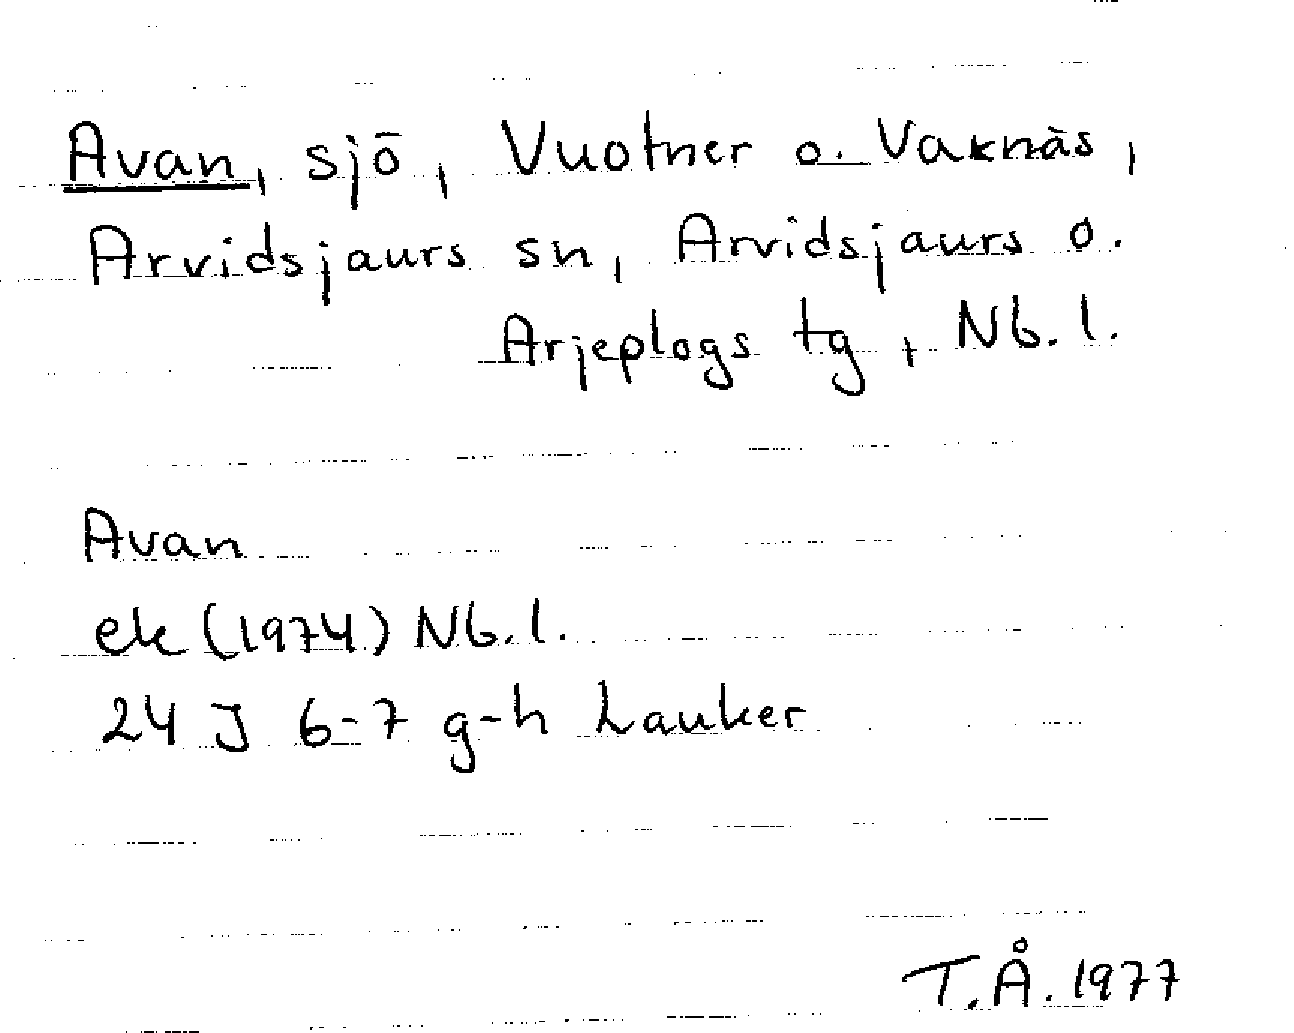 Avan, sjö, Vuotner o. Vaknäs,
Arvidsjaurs sn, Arvidsjaurs o.
Arjeplogs tg, Nb. l.
Avan
ek (1974) Nb. l.
24 J 6-7 g-h Lauker
T.Å. 1977